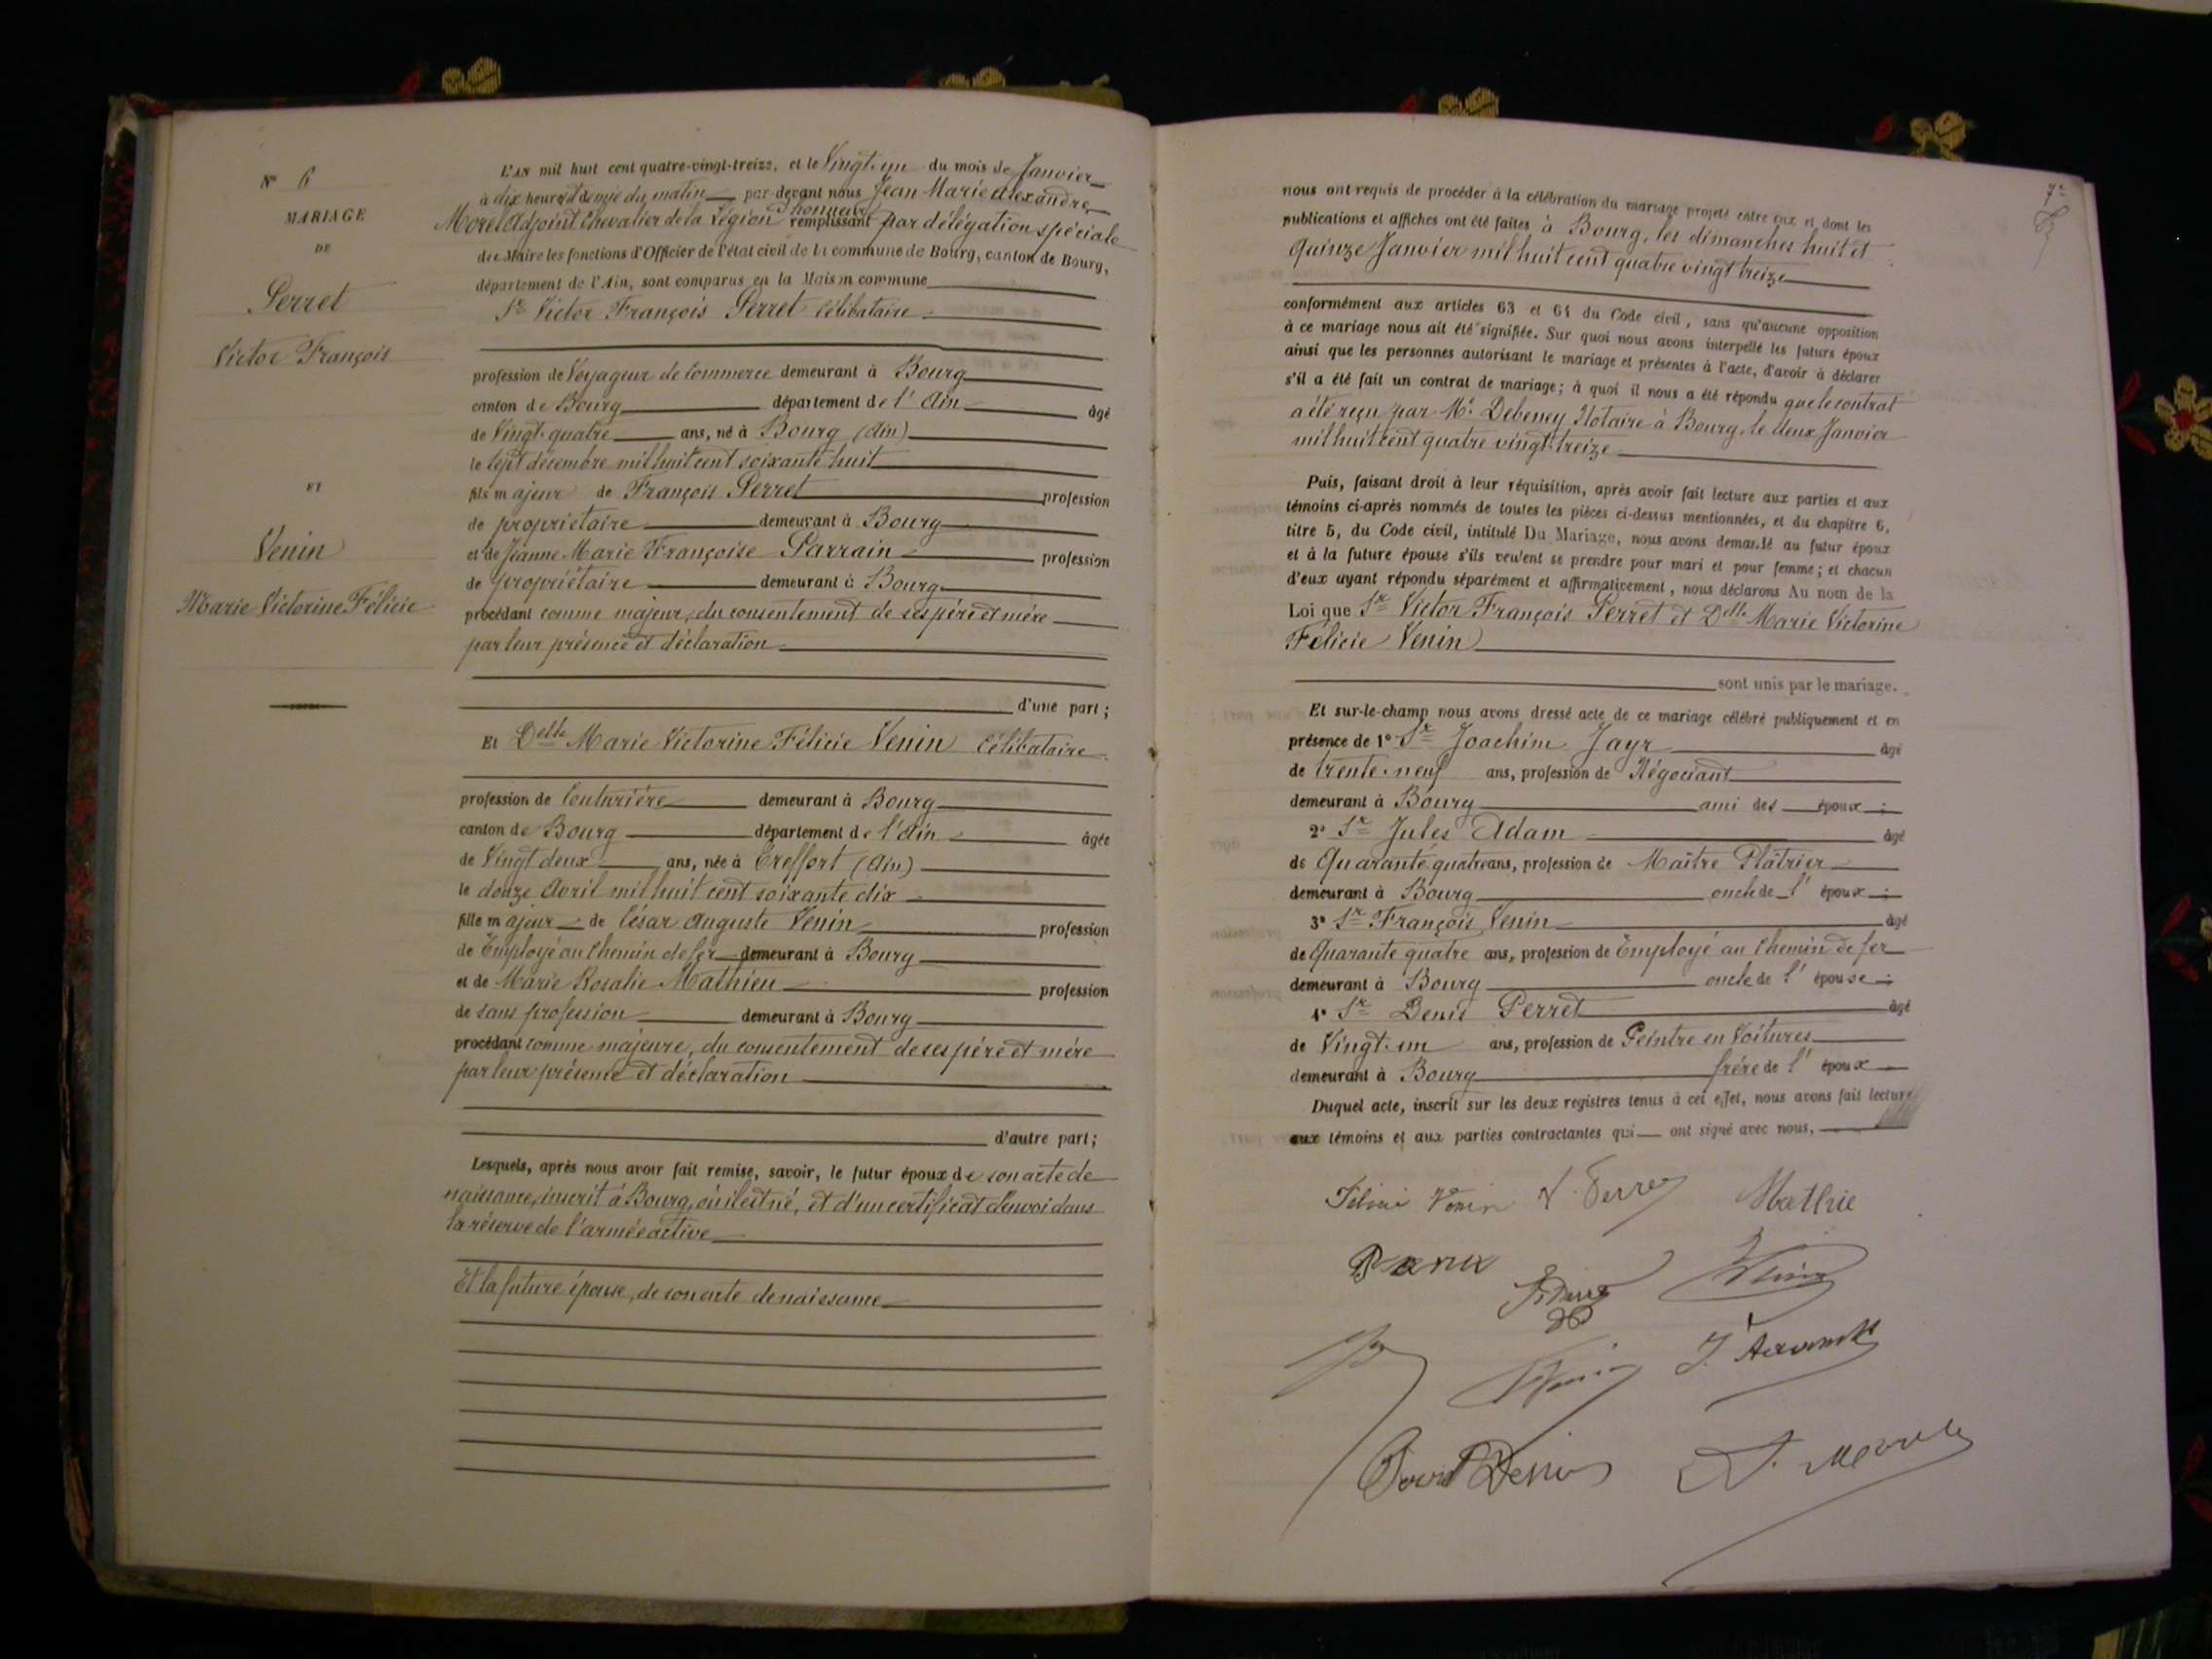 N° 6
MARIAGE
DE
Perret
Victor François
ET
Venin
Marie Victorine Félicie
L'AN mil huit cent quatre-vingt-treize, et le Vingt-un du mois de Janvier
à dix heures et demie du matin par-devant nous Jean Marie Alexandre
Morel Adjoint Chevalier de la Légion d'honneur remplissant par délégation spéciale
du Maire les fonctions d'Officier de l'état civil de la commune de Bourg, canton de Bourg,
département de l'Ain, sont comparus en la Maison commune
Sr Victor François Perret Célibataire
profession de Voyageur de Commerce demeurant à Bourg
canton de Bourg département de l'Ain âgé
de Vingt-quatre ans, né à Bourg (Ain)
le sept décembre mil huit cent soixante huit
fils majeur de François Perret profession
de propriétaire demeurant à Bourg
et de Jeanne Marie Françoise Parrain profession
de propriétaire demeurant à Bourg
procédant comme majeur, du consentement de ses père et mère
par leur présence et déclaration
d'une part;
Et Delle Marie Victorine Félicie Venin Célibataire
profession de Couturière demeurant à Bourg
canton de Bourg département de l'Ain âgée
de Vingt deux ans, née à Treffort (Ain)
le douze Avril mil huit cent soixante dix
fille majeur de César Auguste Venin profession
de Employé au Chemin de fer demeurant à Bourg
et de Marie Rosalie Mathieu profession
de sans profession demeurant à Bourg
procédant comme majeure, du consentement de ses père et mère
par leur présence et déclaration
d'autre part;
Lesquels, après nous avoir fait remise, savoir, le futur époux de son acte de
naissance, inscrit à Bourg, où il est né, et d'un certificat d'envoi dans
la réserve de l'armée active
Et la future épouse, de son acte de naissance
7e
nous ont requis de procéder à la célébration du mariage projeté entre eux et dont les
publications et affiches ont été faites à Bourg, les dimanches huit et
Quinze Janvier mil huit cent quatre vingt treize
conformément aux articles 63 et 64 du Code civil, sans qu'aucune opposition
à ce mariage nous ait été signifiée. Sur quoi nous avons interpellé les futurs époux
ainsi que les personnes autorisant le mariage et présentes à l'acte, d'avoir à déclarer
s'il a été fait un contrat de mariage; à quoi il nous a été répondu que le contrat
a été reçu par Me Debeney Notaire à Bourg, le deux Janvier
mil huit cent quatre vingt-treize
Puis, faisant droit à leur réquisition, après avoir fait lecture aux parties et aux
témoins ci-après nommés de toutes les pièces ci-dessus mentionnées, et du chapitre 6,
titre 5, du Code civil, intitulé Du Mariage, nous avons demandé au futur époux
et à la future épouse s'ils veulent se prendre pour mari et pour femme; et chacun
d'eux ayant répondu séparément et affirmativement, nous déclarons Au nom de la
Loi que Sr Victor François Perret et Delle Marie Victorine
Félicie Venin
sont unis par le mariage.
Et sur-le-champ nous avons dressé acte de ce mariage célébré publiquement et en
présence de 1° Sr Joachim Jayr âgé
de trente-neuf ans, profession de Négociant
demeurant à Bourg ami des époux;
2° Sr Jules Adam âgé
de Quarante quatre ans, profession de Maître Plâtrier
demeurant à Bourg oncle de l'époux;
3° Sr François Venin âgé
de Quarante quatre ans, profession de Employé au Chemin de fer
demeurant à Bourg oncle de l'épouse;
4° Sr Denis Perret âgé
de Vingt-un ans, profession de Peintre en Voitures
demeurant à Bourg frère de l'époux
Duquel acte, inscrit sur les deux registres tenus à cet effet, nous avons fait lecture
aux témoins et aux parties contractantes qui ont signé avec nous.
Félicie Venin V. Perret Mathie
Venin
Denis A. Morel